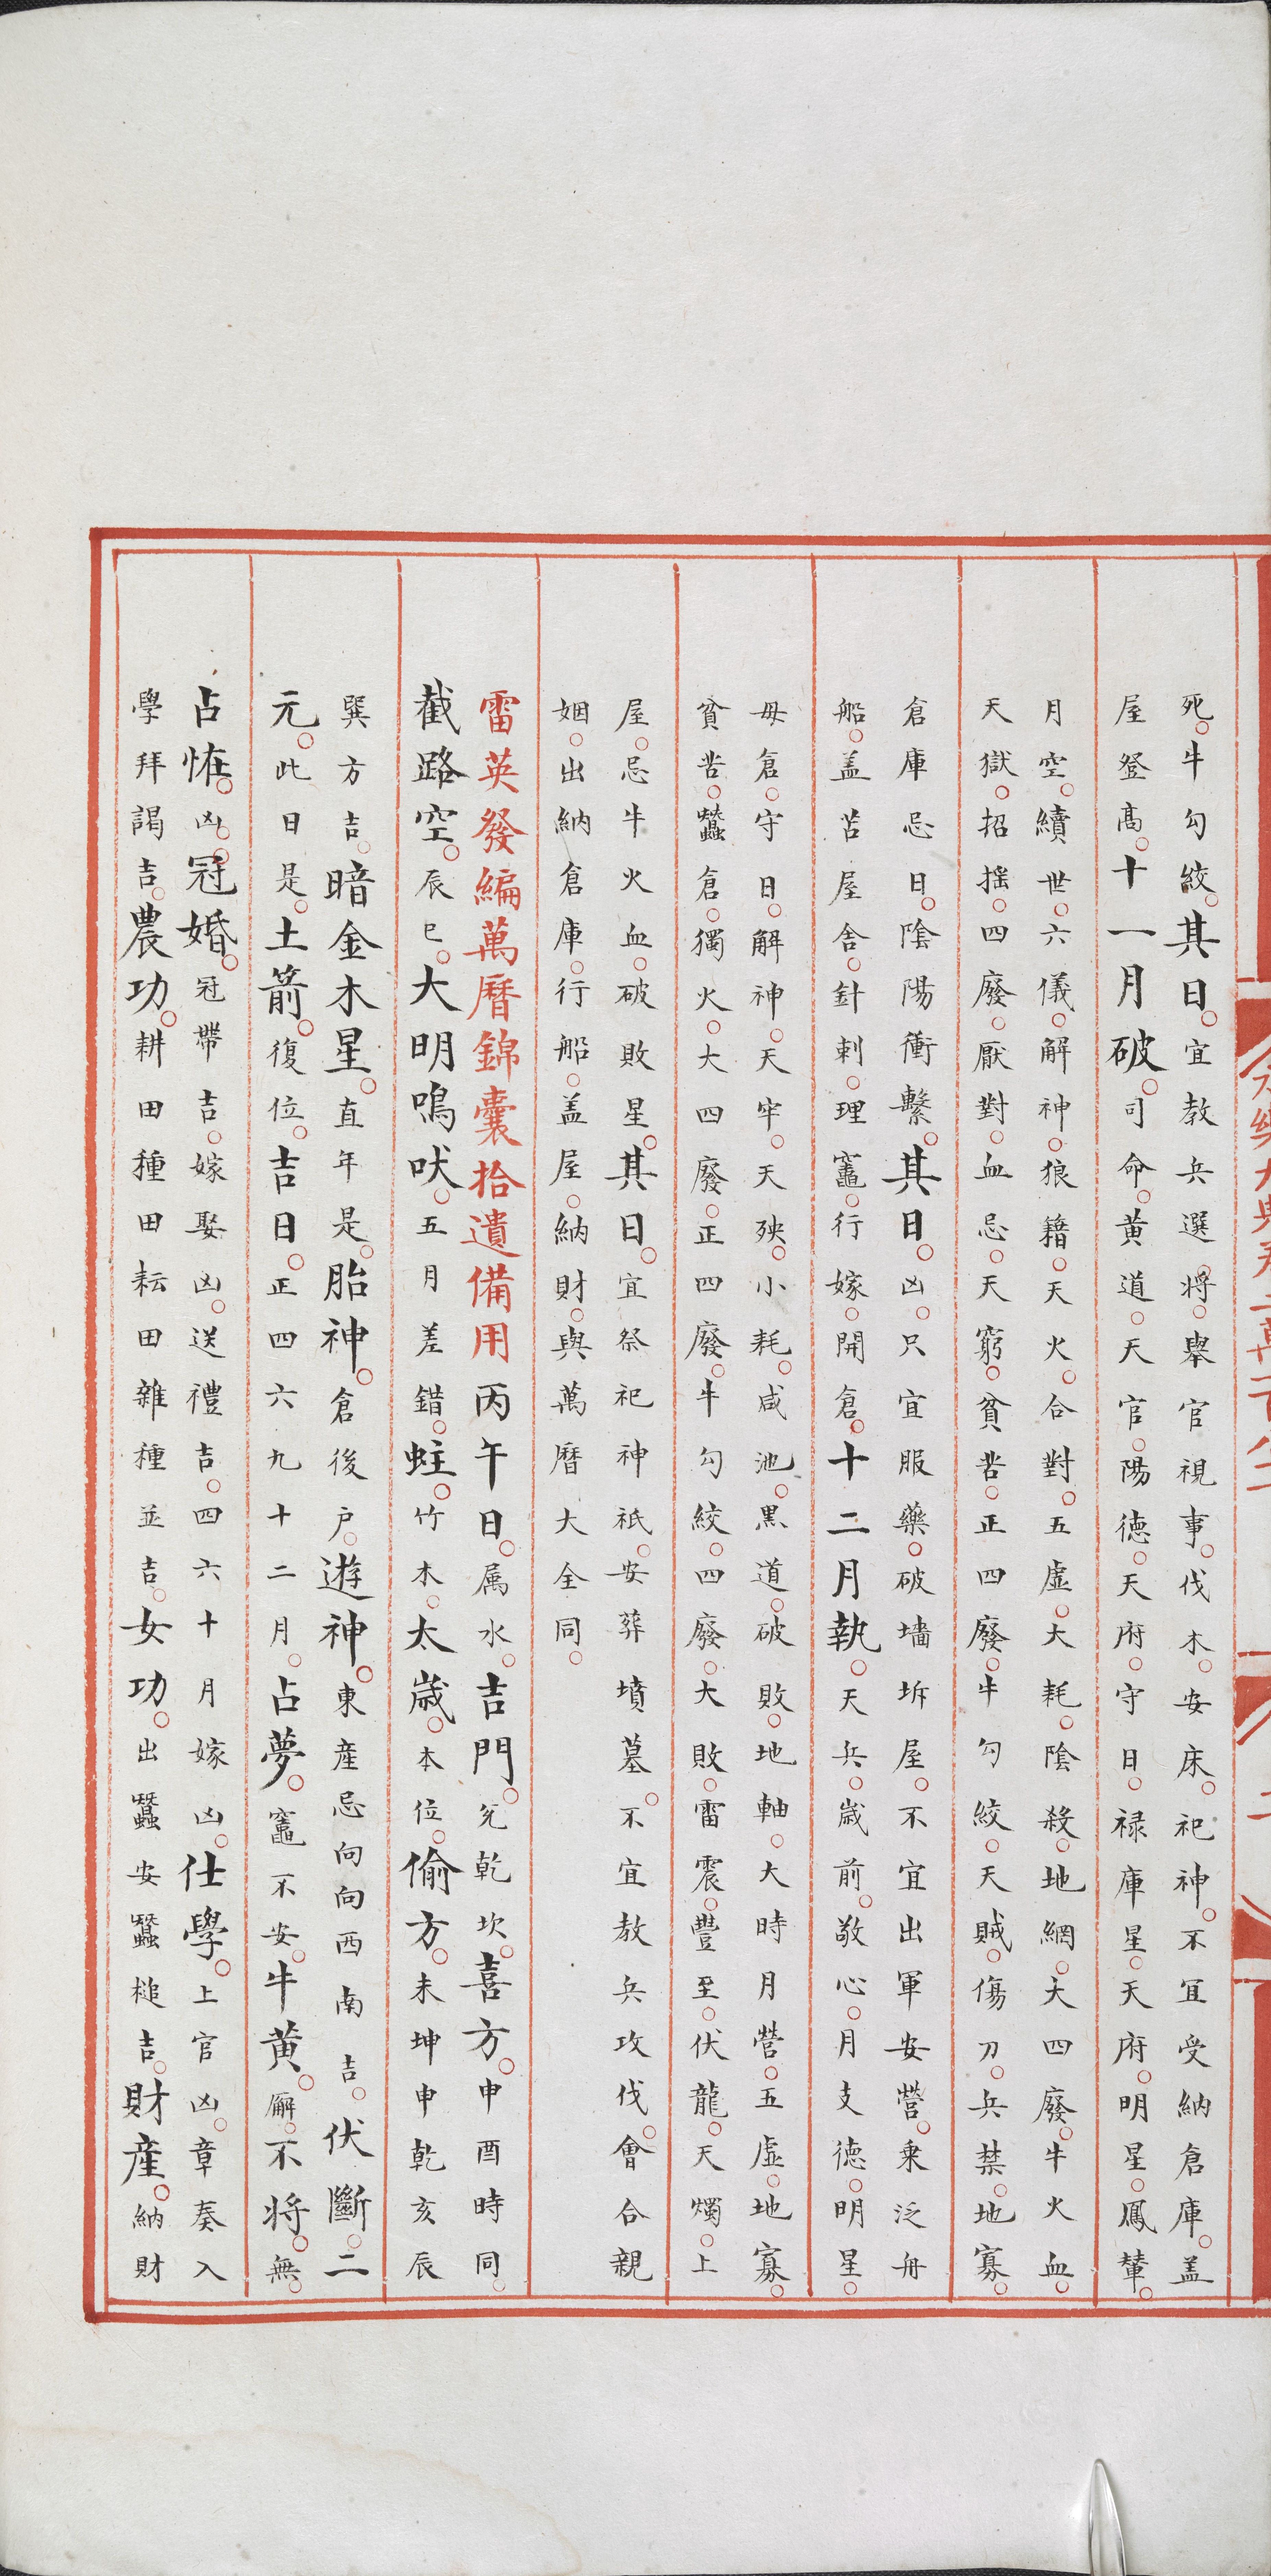 死。牛勾絞。其日。宜教兵選將。舉官視事。伐木。安床。祀神。不宜受納倉庫。盖
屋登髙。十一月破。司命。黄道。天官。陽德。天府。守日。禄庫星。天府。明星。鳳輦。
月空。續世。六儀。解神。狼籍。天火。合對。五虛。大耗。陰殺。地網。大四廢。牛火血。
天獄。招摇。四廢。厭對。血忌。天窮。貧苦。正四廢。牛勾絞。天賊。傷刀。兵禁。地寡。
倉庫忌日。陰陽衝繫。其日。凶。只宜服藥。破墻坼屋。不宜出軍安營。乘泛舟
船。盖苫屋舍。針刺。理竈。行嫁。開倉。十二月執。天兵。歲前。敬心。月支德。明星。
母倉。守日。解神。天牢。天殃。小耗。咸池。黒道。破敗。地軸。大時月營。五虛。地寡。
貧苦。蠶倉。獨火。大四廢。正四廢。牛勾絞。四廢。大敗。雷震。豐至。伏龍。天燭。上
屋。忌牛火血。破敗星。其日。宜祭祀神祇。安葬墳墓。不宜教兵攻伐。會合親
姻。出納倉庫。行船。盖屋。納財。與萬曆大全同。
雷英發編萬曆錦囊拾遺備用丙午日。属水。吉門。兊乾坎。喜方。申酉時同。
截路空。辰巳。大明鳴吠。五月差錯。蛀。竹木。太歲。本位。偷方。未坤申乾亥辰
巽方吉。暗金木星。直年是。胎神。倉後户。遊神。東産忌向向西南吉。伏斷。二
元。此日是。土箭。復位。吉日。正四六九十二月。占夢。竈不安。牛黄。廨。不将。無。
占恠。凶。冠婚。冠帶吉。嫁娶凶。送禮吉。四六十月嫁凶。仕學。上官凶。章奏入
學拜謁吉。農功。耕田種田耘田雜種並吉。女功。出蠶安蠶槌吉。財産。納財